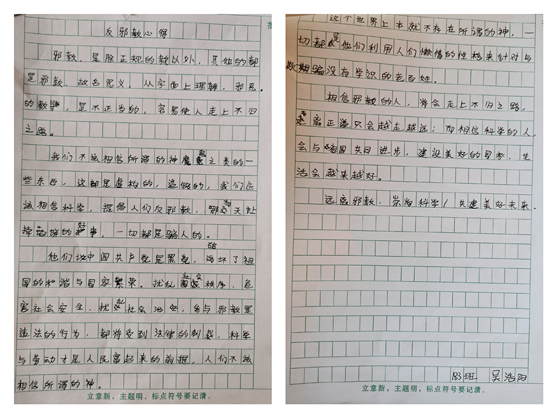 反邪教心得
邪教,是除正规的教以外,其他的都
是邪教,故名思义,从字面上理解,邪恶
的教,是不正当的,容易使人走上不归
之路。
我们不该相信所谓的神魔之类的一
些东西,这都是虚构的,造假的,我们应
该相信科学,提倡人们反邪教,天处
掉的事,一切都是骗人的。
他们说中国共产党是黑党,破坏了祖
国的和谐与国家繁荣。扰乱秩序,危
害社会安生,扰社会治安,参与邪教是
违法的行为,都将受到法律的制裁,科学
与劳动才是人民富起来的前提,人们不该
相信所谓的神。
立意新、主题明,标点符号要记清。
这个世界上本就不存在所谓的神,一
切都是他们利用人们懒惰的性格来针对与
欺骗没有学识的老百姓。
相信邪教的人,将会走上不归之路,
离正道只会越走越远;而相信科学的人,
会与祖国共同进步,建设美好的国家,生
活会越来越好。
远离邪教,崇尚科学!共建美好未来。
班 吴浩阳
立意新、主题明,标点符号要记清。